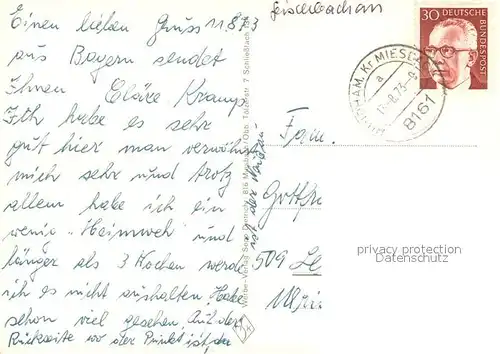 Einen lieben Gruss 11.8.73
aus Bayern sendet
Ihnen Cläre Kramp
Ich habe es sehr
gut hier man verwöhnt
mich sehr und trotz
allem habe ich ein
wenig "Heimweh" und
länger als 3 Wochen werde
ich es nicht aushalten. Habe
schon viel gesehen. Auf der
Rückseite wo der Punkt ist, da
ist der
Fischbachau
DEUTSCHE
BUNDESPOST
30
KR MIESBACH
a
13.-8.73-9
8161
Werbe-Verlag
7 Schließfach
Fam.
Gottfr
509 Le
privacy protection
Datenschutz